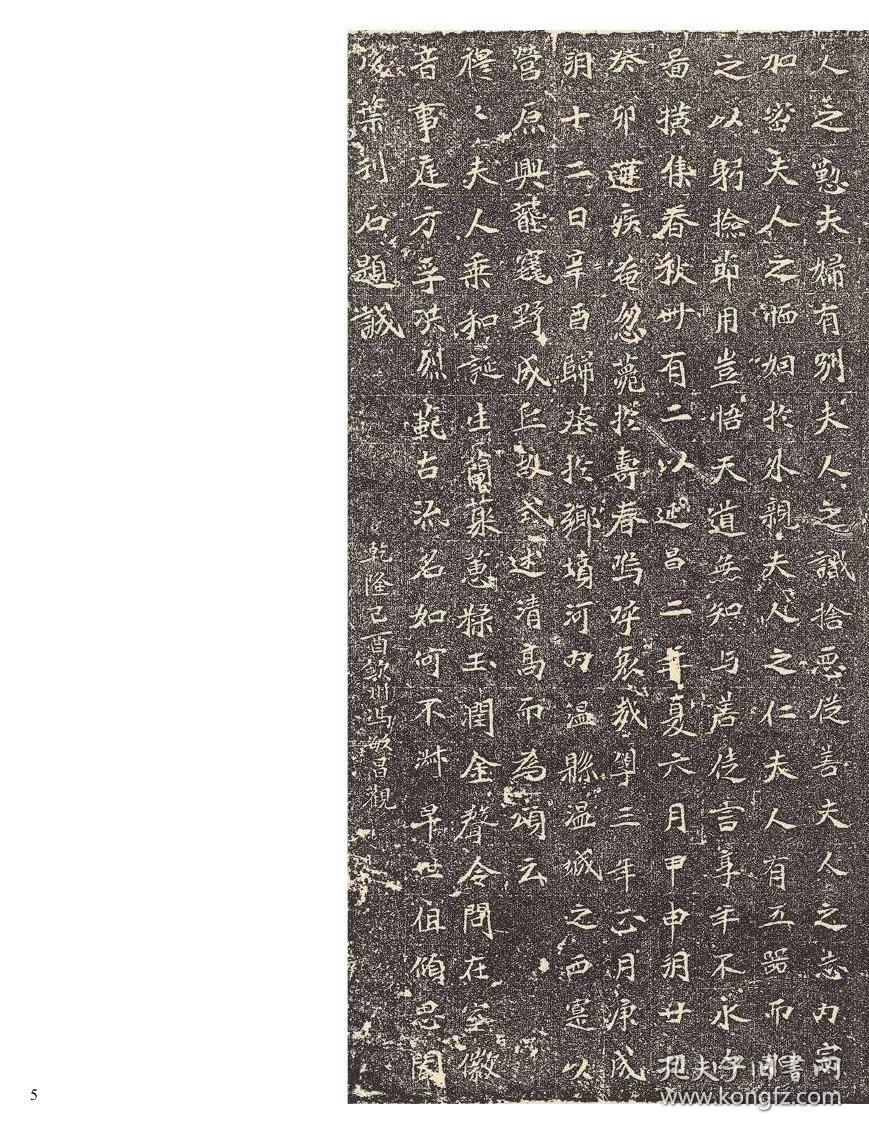 人之懃夫婦有別夫人之識捨惡從善夫人之志內宗
加密夫人之恤姻於外親夫人之仁夫人有五器而加
之以躬撿節用豈悟天道無知与善徒言享年不永凶
啚橫集春秋卌有二以延昌二年夏六月甲申朔廿日
癸卯遘疾奄忽薨於壽春嗚呼哀哉粤三年正月庚戌
朔十二日辛酉歸葬於鄉墳河內溫縣溫城之西以
營原興壟竁野成丘故式述清高而為頌云
穆〻夫人乘和誕生蘭蘂蕙糅玉潤金聲令問在室徽
音事庭方孚洪烈範古流名如何不淋早世徂傾思聞
後葉刊石題誠
乾隆己酉欽州馮敏昌觀
5
孔夫子旧書网
www.kongfz.com